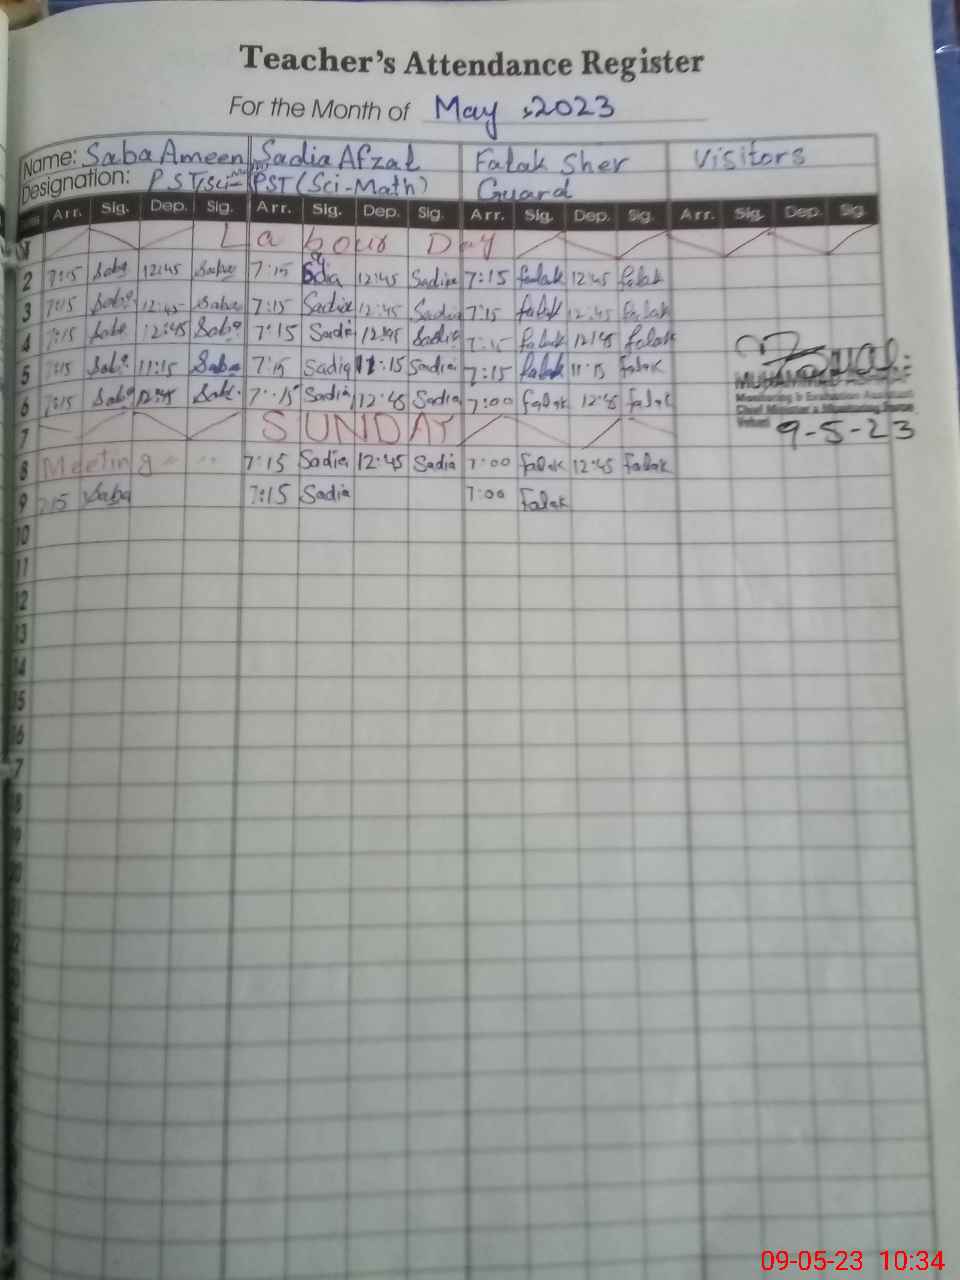 Teacher's Attendance Register
For the Month of May, 2023
Name: Saba Ameen Sadia Afzal Falak Sher Visitors
Designation: PST(Sci- PST (Sci-Math) Guard
Arr. Sig. Dep. Sig. Arr. Sig. Dep. Sig. Arr. Sig. Dep. Sig. Arr. Sig. Dep. Sig.
Labour Day
2 7:15 Saba 12:45 Saba 7:15 Sadia 12:45 Sadia 7:15 falak 12:45 falak
3 7:15 Saba 12:45 Saba 7:15 Sadia 12:45 Sadia 7:15 falak 12:45 falak
4 7:15 Saba 12:45 Saba 7:15 Sadia 12:45 Sadia 7:15 falak 12:45 falak
5 7:15 Saba 11:15 Saba 7:15 Sadia 11:15 Sadia 7:15 falak 11:15 Falak
6 7:15 Saba 12:45 Saba 7:15 Sadia 12:45 Sadia 7:00 falak 12:45 falak
Monitoring & Evaluation Assistant
Chief Minister's Monitoring Force
Vehari 9-5-23
7 SUNDAY
8 Meeting 7:15 Sadia 12:45 Sadia 7:00 Falak 12:45 Falak
9 7:15 Saba 7:15 Sadia 7:00 Falak
10
11
12
13
14
15
16
17
18
19
20
21
22
23
24
25
26
27
28
09-05-23 10:34